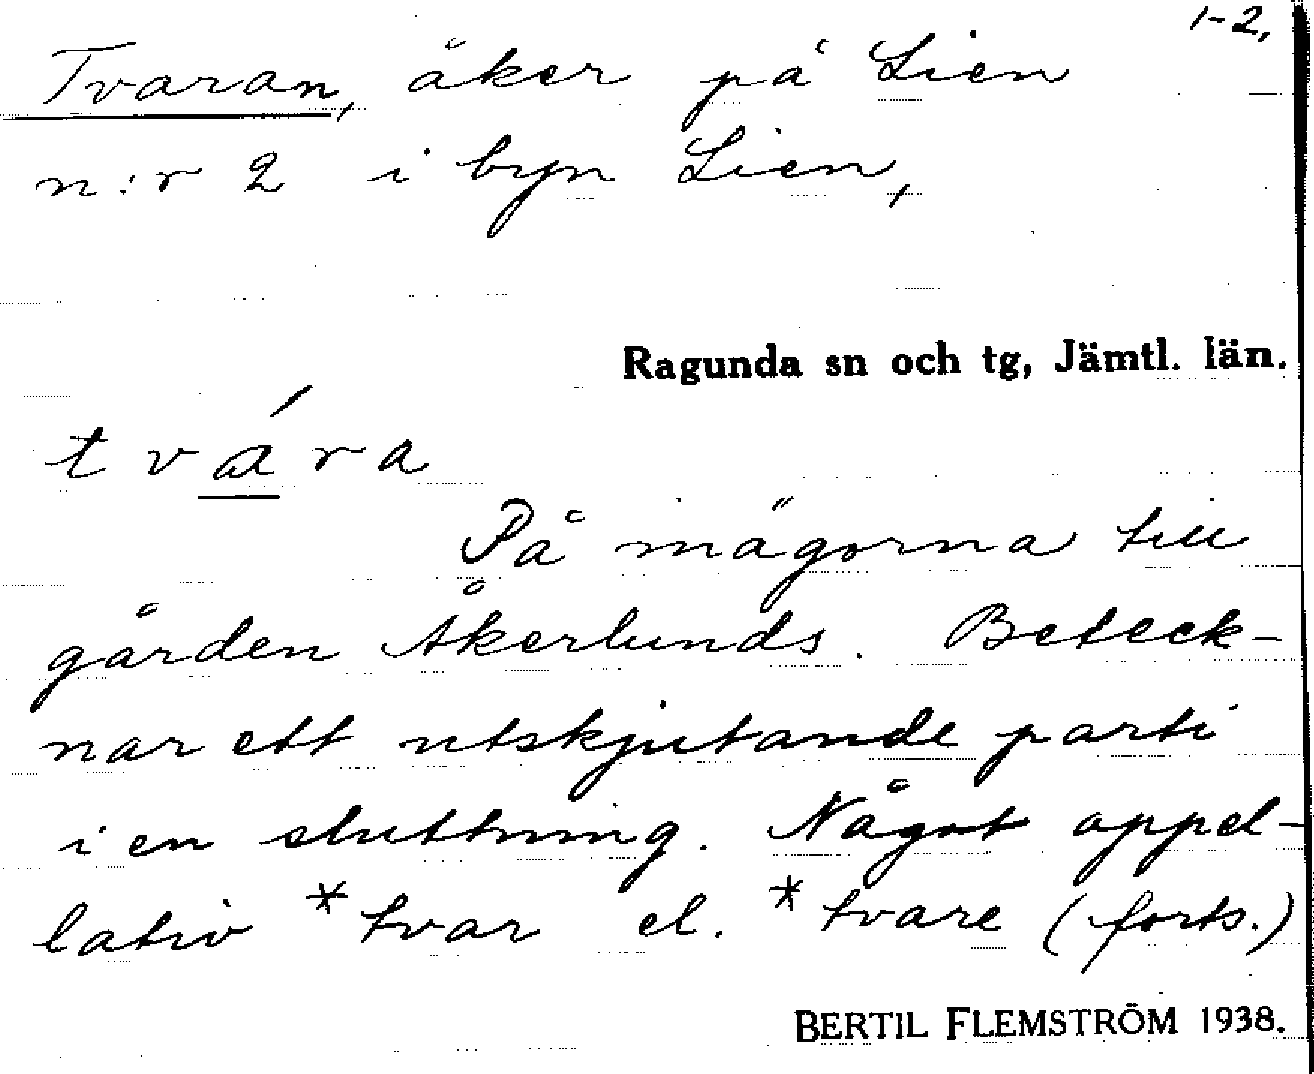 1-2,
Tvaran, åker på Lien
n:r 2 i byn Lien,
Ragunda sn och tg, Jämtl. län.
tvára
På mägorna till
gården Åkerlunds. Beteck-
nar ett utskjutande parti
i en sluttning. Något appel-
lativ *tvar el. *tvare (forts.)
BERTIL FLEMSTRÖM 1938.